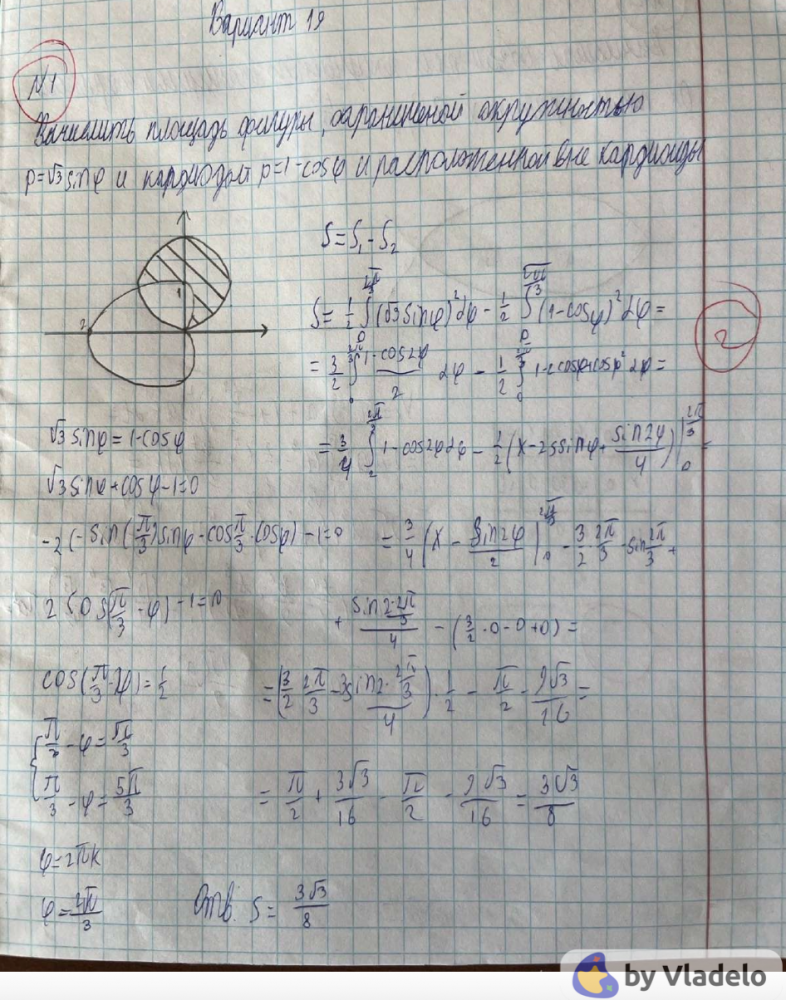 Вариант 19
№1
Вычислить площадь фигуры, ограниченой окружностью
ρ=√3 sinφ и кардиодой ρ=1-cosφ и расположенной вне кардиоиды
S=S₁-S₂
1
2
2
S= 1/2 ∫ (√3 sinφ)² dφ - 1/2 ∫ (1-cosφ)² dφ =
= 3/2 ∫ (1-cos2φ)/2 dφ - 1/2 ∫ 1-2cosφ+cosφ² dφ =
√3 sinφ = 1-cosφ
= 3/4 ∫ 1-cos2φ dφ - 1/2 (x-2sinφ+ sin2φ/4) |₀^(2π/3) =
√3 sinφ+cosφ-1=0
-2(-sin(π/3)sinφ-cos π/3 · cosφ)-1=0
= 3/4 (x - sin2φ/2) | - 3/2 · 2π/3 - sin 2π/3 +
2cos(π/3 - φ)-1=0
+ (sin2·2π/3)/4 - (3/2·0-0+0) =
cos(π/3 - φ)=1/2
= (3/2 · 2π/3 - 3sin2·2π/3 / 4) · 1/2 - π/2 - 9√3/16 =
π/3 - φ = π/3
π/3 - φ = 5π/3
= π/2 + 3√3/16 - π/2 - 9√3/16 = 3√3/8
φ=2πk
φ= 4π/3
Отв. S= 3√3/8
by Vladelo